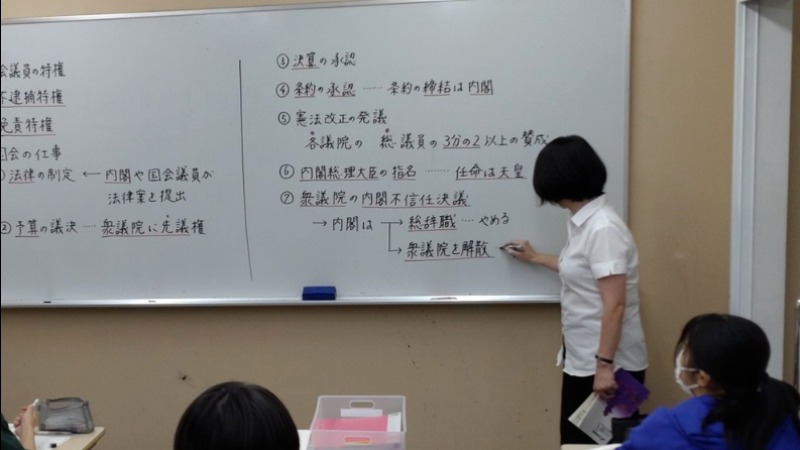 会議員の特権
不逮捕特権
免責特権
国会の仕事
法律の制定 ← 内閣や国会議員が
法律案を提出
②予算の議決 … 衆議院に先議権
③決算の承認
④条約の承認 …… 条約の締結は内閣
⑤憲法改正の発議
各議院の総議員の3分の2以上の賛成
⑥内閣総理大臣の指名 …… 任命は天皇
⑦衆議院の内閣不信任決議
→内閣は→総辞職 … やめる
→衆議院を解散